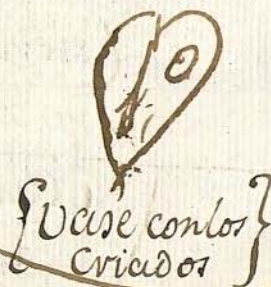 {Vase con los
criados}